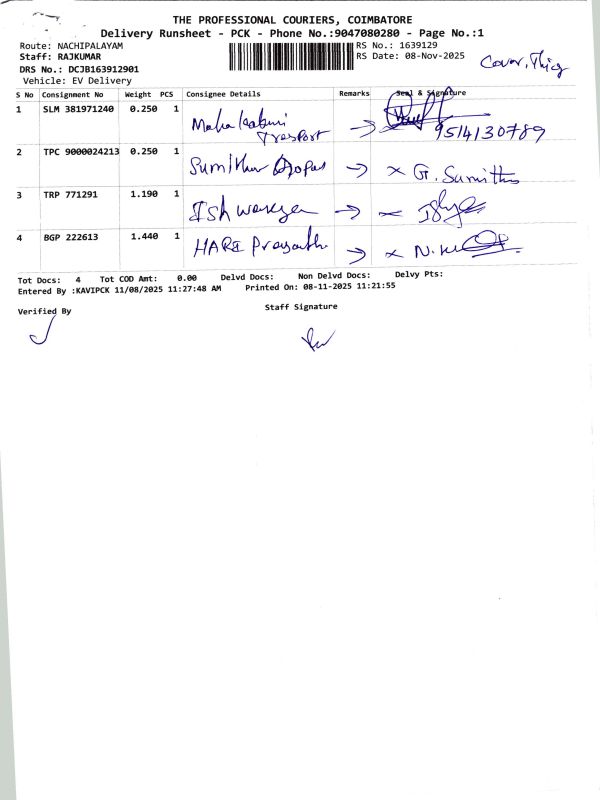 THE PROFESSIONAL COURIERS, COIMBATORE
Delivery Runsheet - PCK - Phone No.:9047080280 - Page No.:1
Route: NACHIPALAYAM RS No.: 1639129
Staff: RAJKUMAR RS Date: 08-Nov-2025
DRS No.: DCJB163912901
Vehicle: EV Delivery
S No Consignment No Weight PCS Consignee Details Remarks Seal & Signature
1 SLM 381971240 0.250 1
9514130789
2 TPC 9000024213 0.250 1 G. Sumithu
3 TRP 771291 1.190 1
4 BGP 222613 1.440 1 HARI
Tot Docs: 4 Tot COD Amt: 0.00 Delvd Docs: Non Delvd Docs: Delvy Pts:
Entered By :KAVIPCK 11/08/2025 11:27:48 AM Printed On: 08-11-2025 11:21:55
Verified By Staff Signature